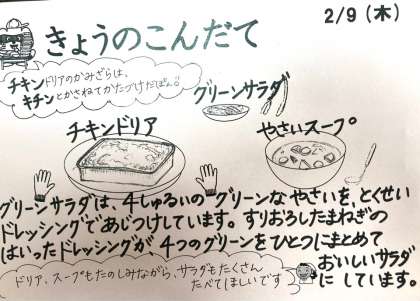 2/9(木)
きょうのこんだて
チキンドリアのかみざらは、
キチンとかさねてかたづけたぽん♪
グリーンサラダ
チキンドリア
やさいスープ
グリーンサラダは、4しゅるいのグリーンなやさいを、とくせい
ドレッシングであじつけしています。すりおろしたまねぎの
はいったドレッシングが、4つのグリーンをひとつにまとめて
おいしいサラダ
にしています。
ドリア、スープもたのしみながら、サラダもたくさん
たべてほしいです